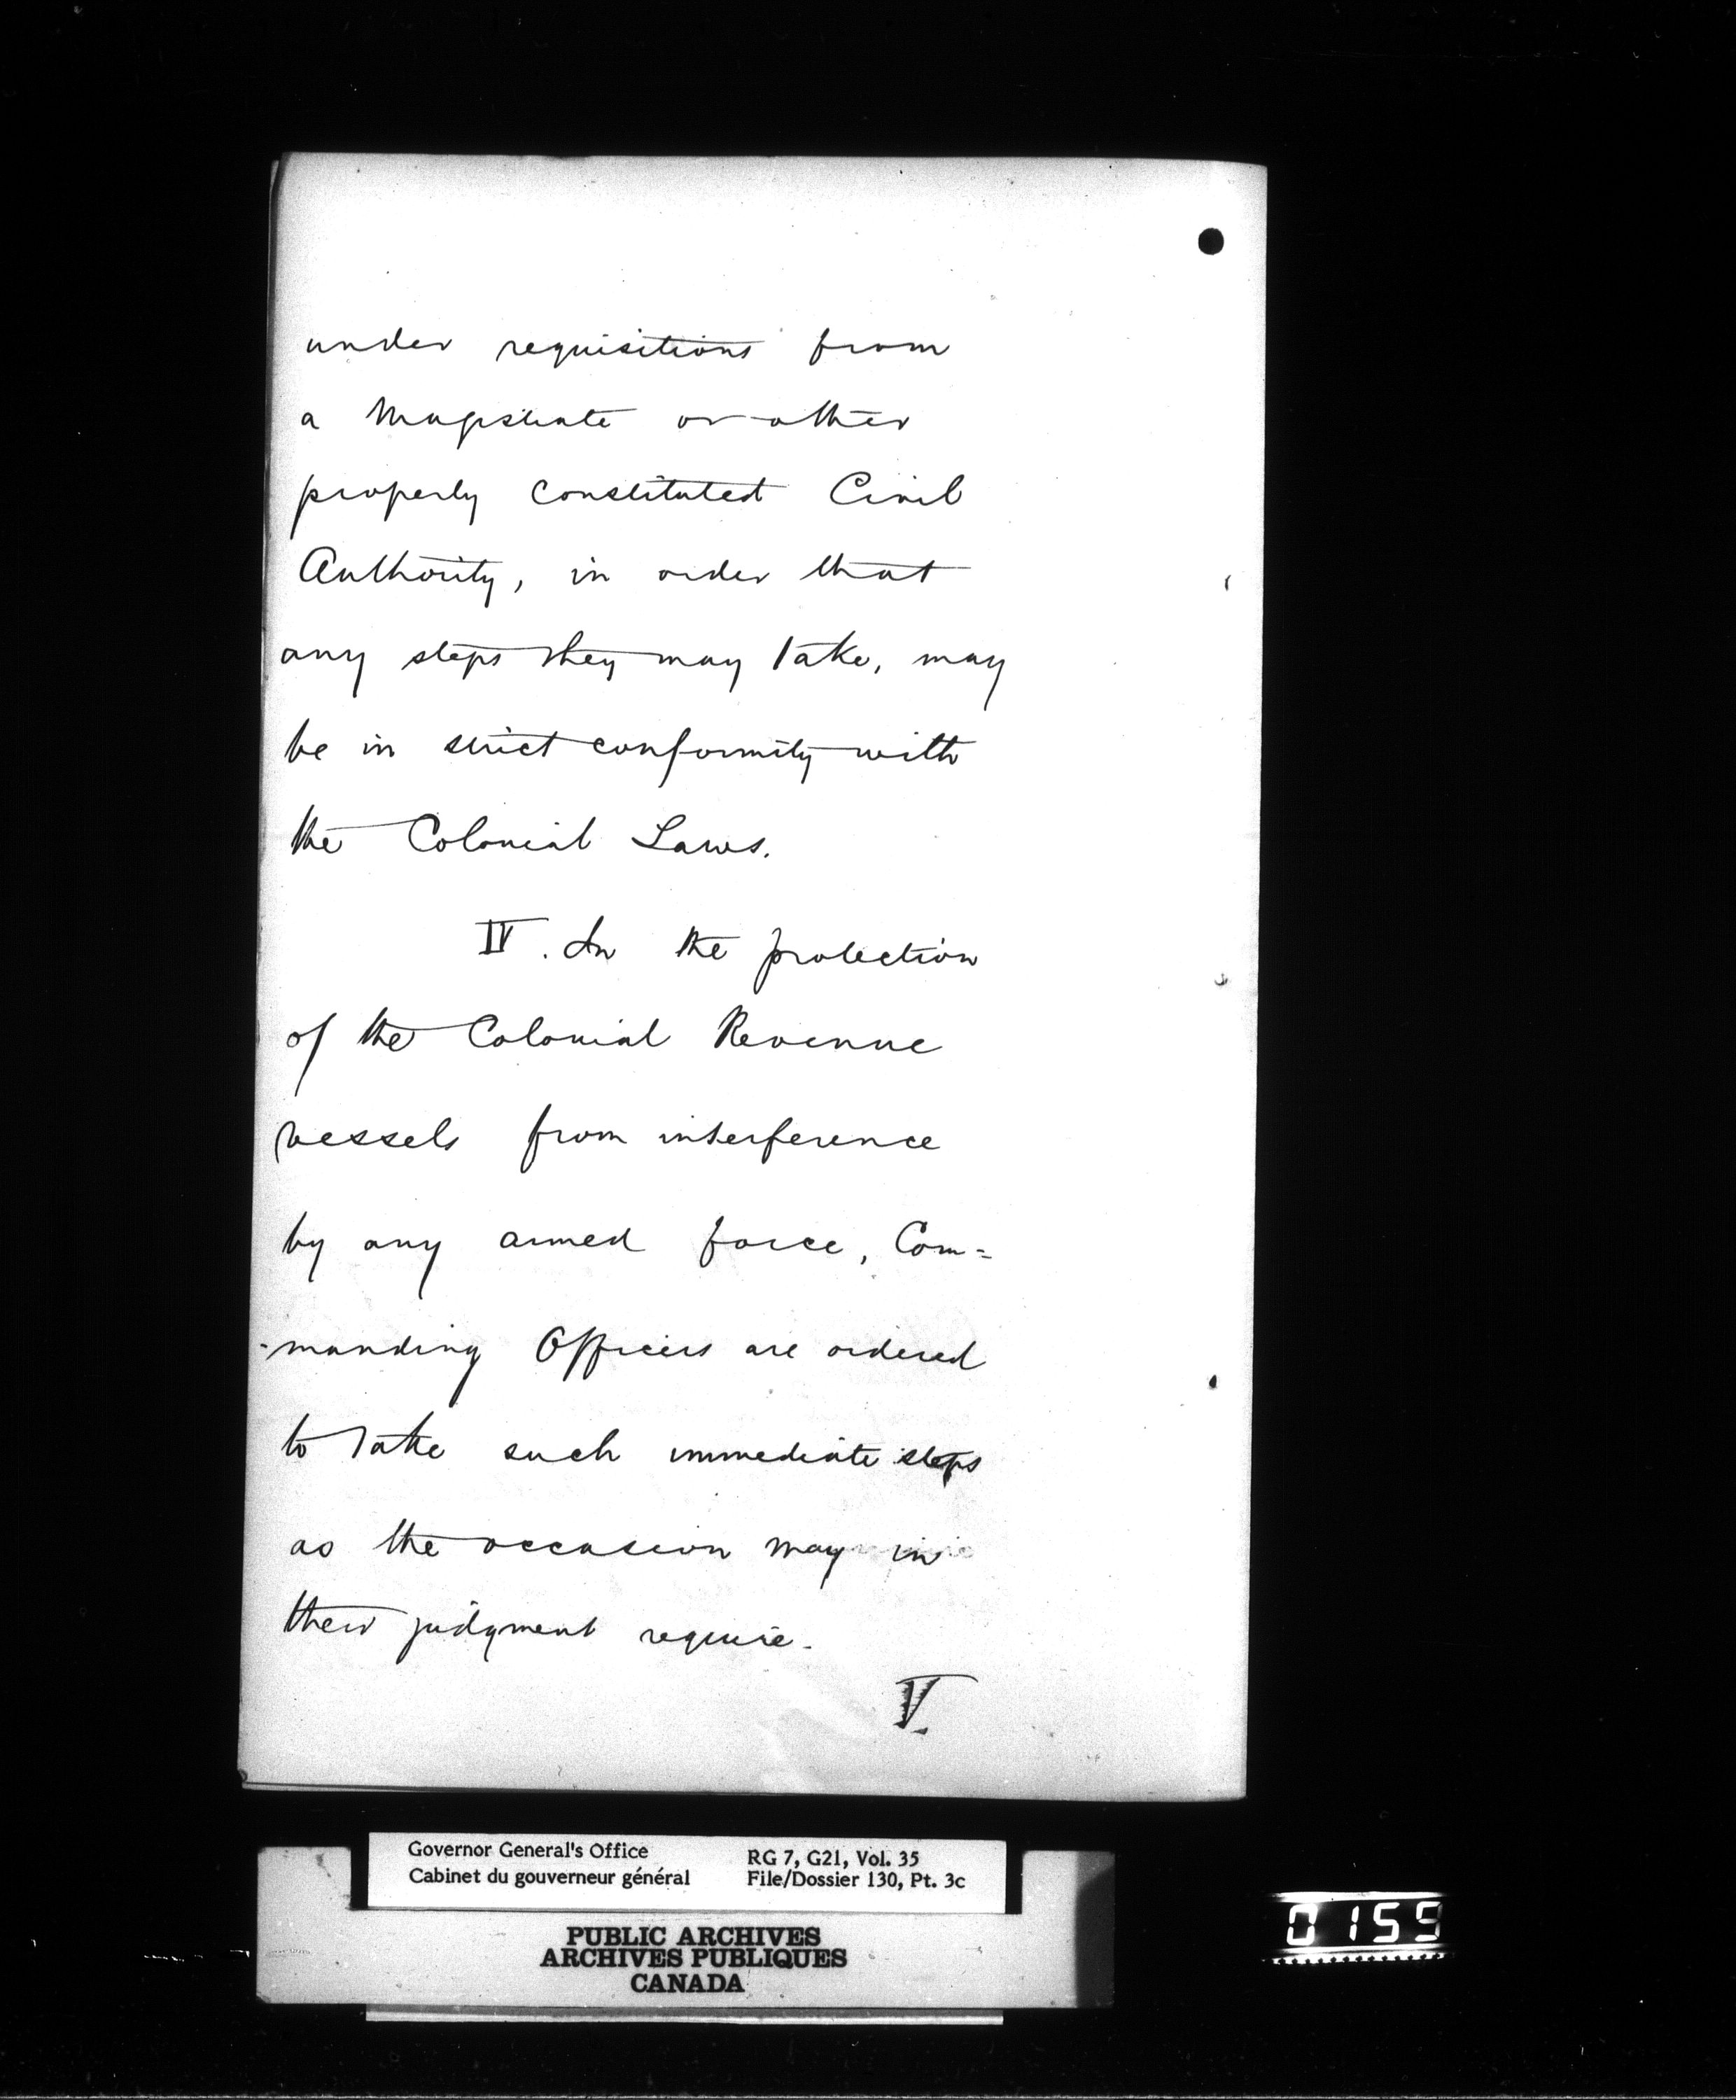 under requisitions from
a Magistrate or other
properly constituted Civil
Authority, in order that
any steps they may take, may
be in strict conformity with
the Colonial Laws.
IV. In the protection
of the Colonial Revenue
vessels from interference
by any armed force, Com=
-manding Officers are ordered
to take such immediate steps
as the occasion may in
their judgment require.
V.
Governor General's Office
Cabinet du gouverneur général
RG 7, G21, Vol. 35
File/Dossier 130, Pt. 3c
PUBLIC ARCHIVES
ARCHIVES PUBLIQUES
CANADA
0155